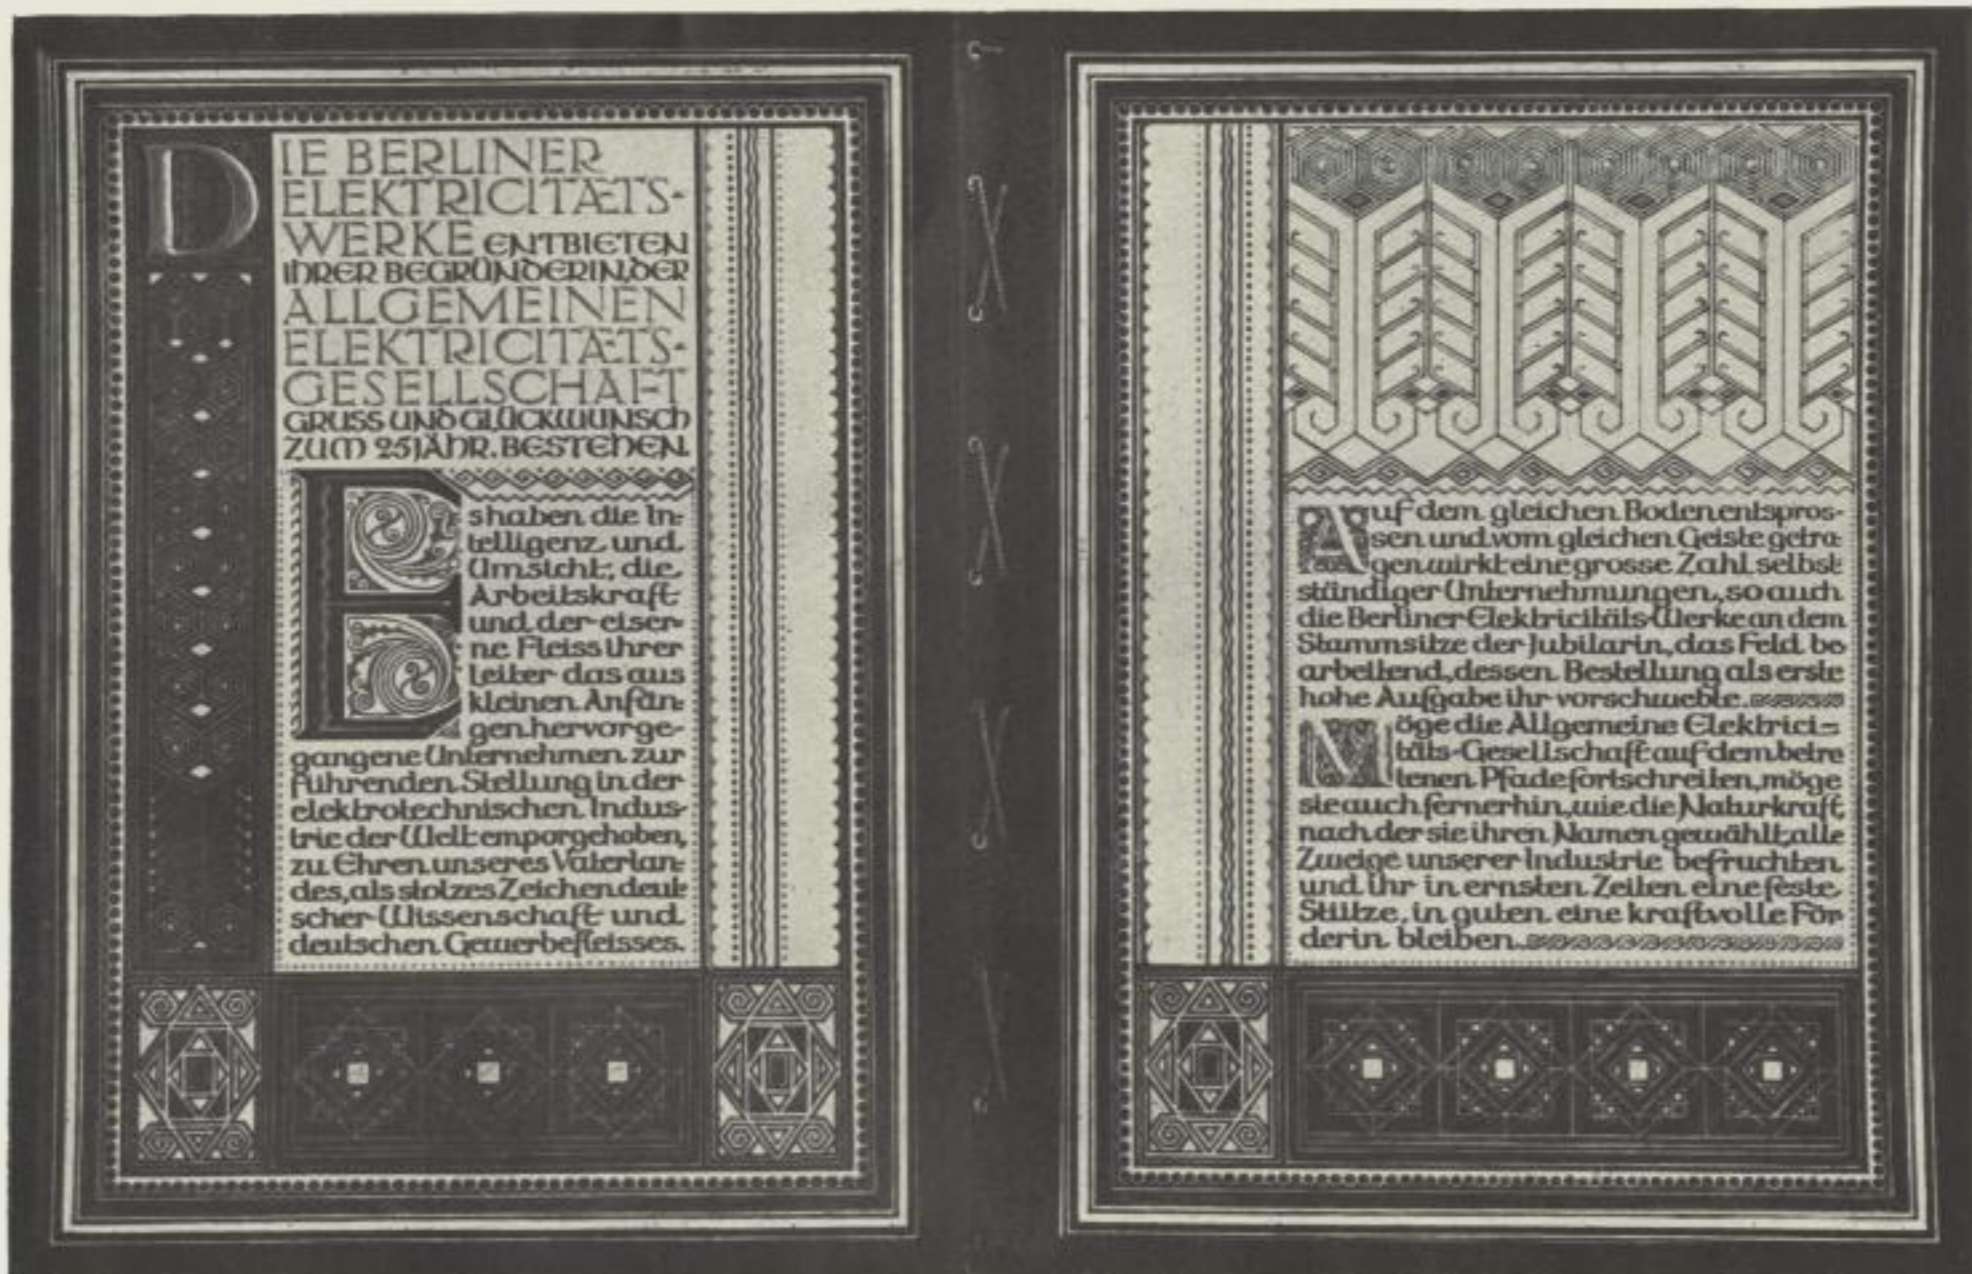 DIE BERLINER
ELEKTRICITÆTS-
WERKE ENTBIETEN
IHRER BEGRÜNDERIN, DER
ALLGEMEINEN
ELEKTRICITÆTS-
GESELLSCHAFT
GRUSS UND GLÜCKWUNSCH
ZUM 25JÄHR. BESTEHEN.
Es haben die In-
telligenz und
Umsicht, die
Arbeitskraft
und der eiser-
ne Fleiss ihrer
Leiter das aus
kleinen Anfän-
gen hervorge-
gangene Unternehmen zur
führenden Stellung in der
elektrotechnischen Indus-
trie der Welt emporgehoben,
zu Ehren unseres Vaterlan-
des, als stolzes Zeichen deut-
scher Wissenschaft und
deutschen Gewerbefleisses.
Auf dem gleichen Boden entspros-
sen und vom gleichen Geiste getra-
gen wirkt eine grosse Zahl selbst-
ständiger Unternehmungen, so auch
die Berliner Elektricitäts-Werke an dem
Stammsitze der Jubilarin, das Feld be-
arbeitend, dessen Bestellung als erste
hohe Aufgabe ihr vorschwebte.
Möge die Allgemeine Elektrici-
täts-Gesellschaft auf dem betre-
tenen Pfade fortschreiten, möge
sie auch fernerhin, wie die Naturkraft,
nach der sie ihren Namen gewählt, alle
Zweige unserer Industrie befruchten
und ihr in ernsten Zeiten eine feste
Stütze, in guten eine kraftvolle För-
derin bleiben.